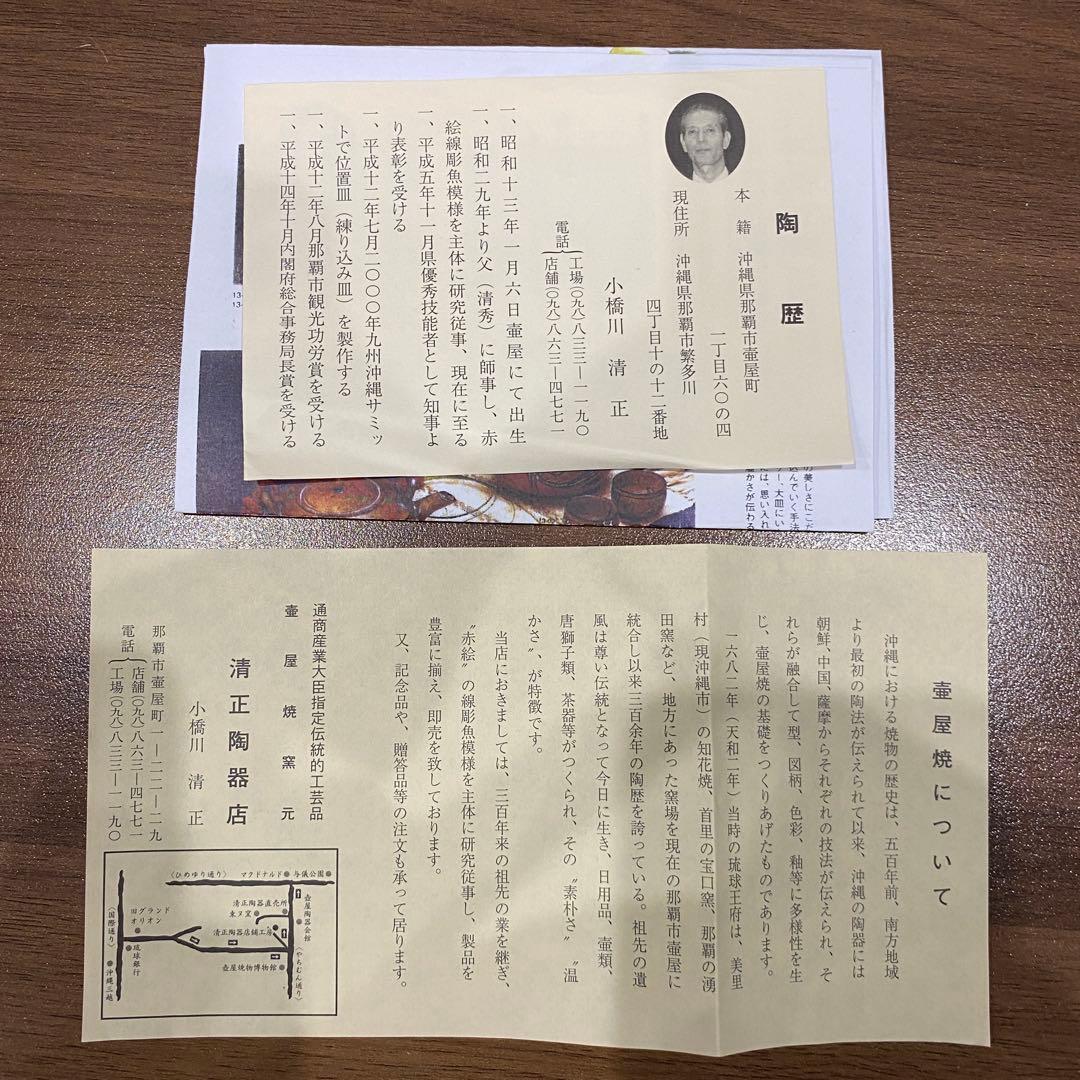 陶歴
本籍 沖縄県那覇市壷屋町
一丁目六〇の四
現住所 沖縄県那覇市繁多川
四丁目十の十二番地
小橋川 清正
電話{工場(〇九八)八三三―一一九〇
店舗(〇九八)八六三―四七七一
一、昭和十三年一月六日壷屋にて出生
一、昭和二九年より父(清秀)に師事し、赤
絵線彫魚模様を主体に研究従事、現在に至る
一、平成五年十一月県優秀技能者として知事よ
り表彰を受ける
一、平成十二年七月二〇〇〇年九州沖縄サミッ
トで位置皿(練り込み皿)を製作する
一、平成十二年八月那覇市観光功労賞を受ける
一、平成十四年十月内閣府総合事務局長賞を受ける
の美しさにこだ
込んでいく手法
ー、大皿にい
には、思い入れ
温かさが伝わる
壷屋焼について
沖縄における焼物の歴史は、五百年前、南方地域
より最初の陶法が伝えられて以来、沖縄の陶器には
朝鮮、中国、薩摩からそれぞれの技法が伝えられ、そ
れらが融合して型、図柄、色彩、釉等に多様性を生
じ、壷屋焼の基礎をつくりあげたものであります。
一六八二年(天和二年)当時の琉球王府は、美里
村(現沖縄市)の知花焼、首里の宝口窯、那覇の湧
田窯など、地方にあった窯場を現在の那覇市壷屋に
統合し以来三百余年の陶歴を誇っている。祖先の遺
風は尊い伝統となって今日に生き、日用品、壷類、
唐獅子類、茶器等がつくられ、その〝素朴さ〟〝温
かさ〟、が特徴です。
当店におきましては、三百年来の祖先の業を継ぎ、
〝赤絵〟の線彫魚模様を主体に研究従事し、製品を
豊富に揃え、即売を致しております。
又、記念品や、贈答品等の注文も承って居ります。
通商産業大臣指定伝統的工芸品
壷屋焼窯元
清正陶器店
小橋川 清正
那覇市壷屋町一―二二―二九
電話{店舗(〇九八)八六三―四七七一
工場(〇九八)八三三―一一九〇
(ひめゆり通り) マクドナルド 与儀公園
清正陶器直売所
東ヌ窯
壷屋陶器会館
旧グランド
オリオン
清正陶器店舗工房
(やちむん通り)
(国際通り)
琉球銀行
壷屋焼物博物館
沖縄三越